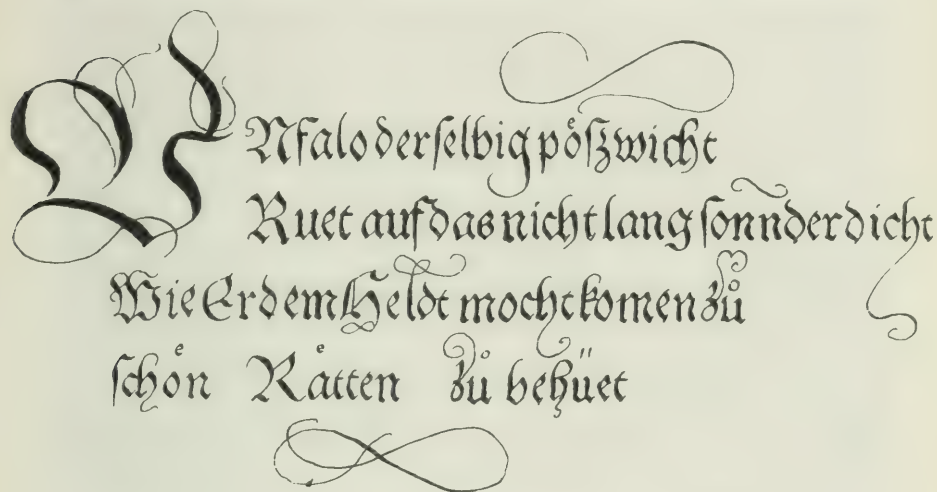 VNfalo der ſelbig poͤſzwicht
Ruet auf das nicht lang ſonnder dicht
Wie Er dem Heldt mocht komen zů
ſchoͤn Raͤtten zů behüet